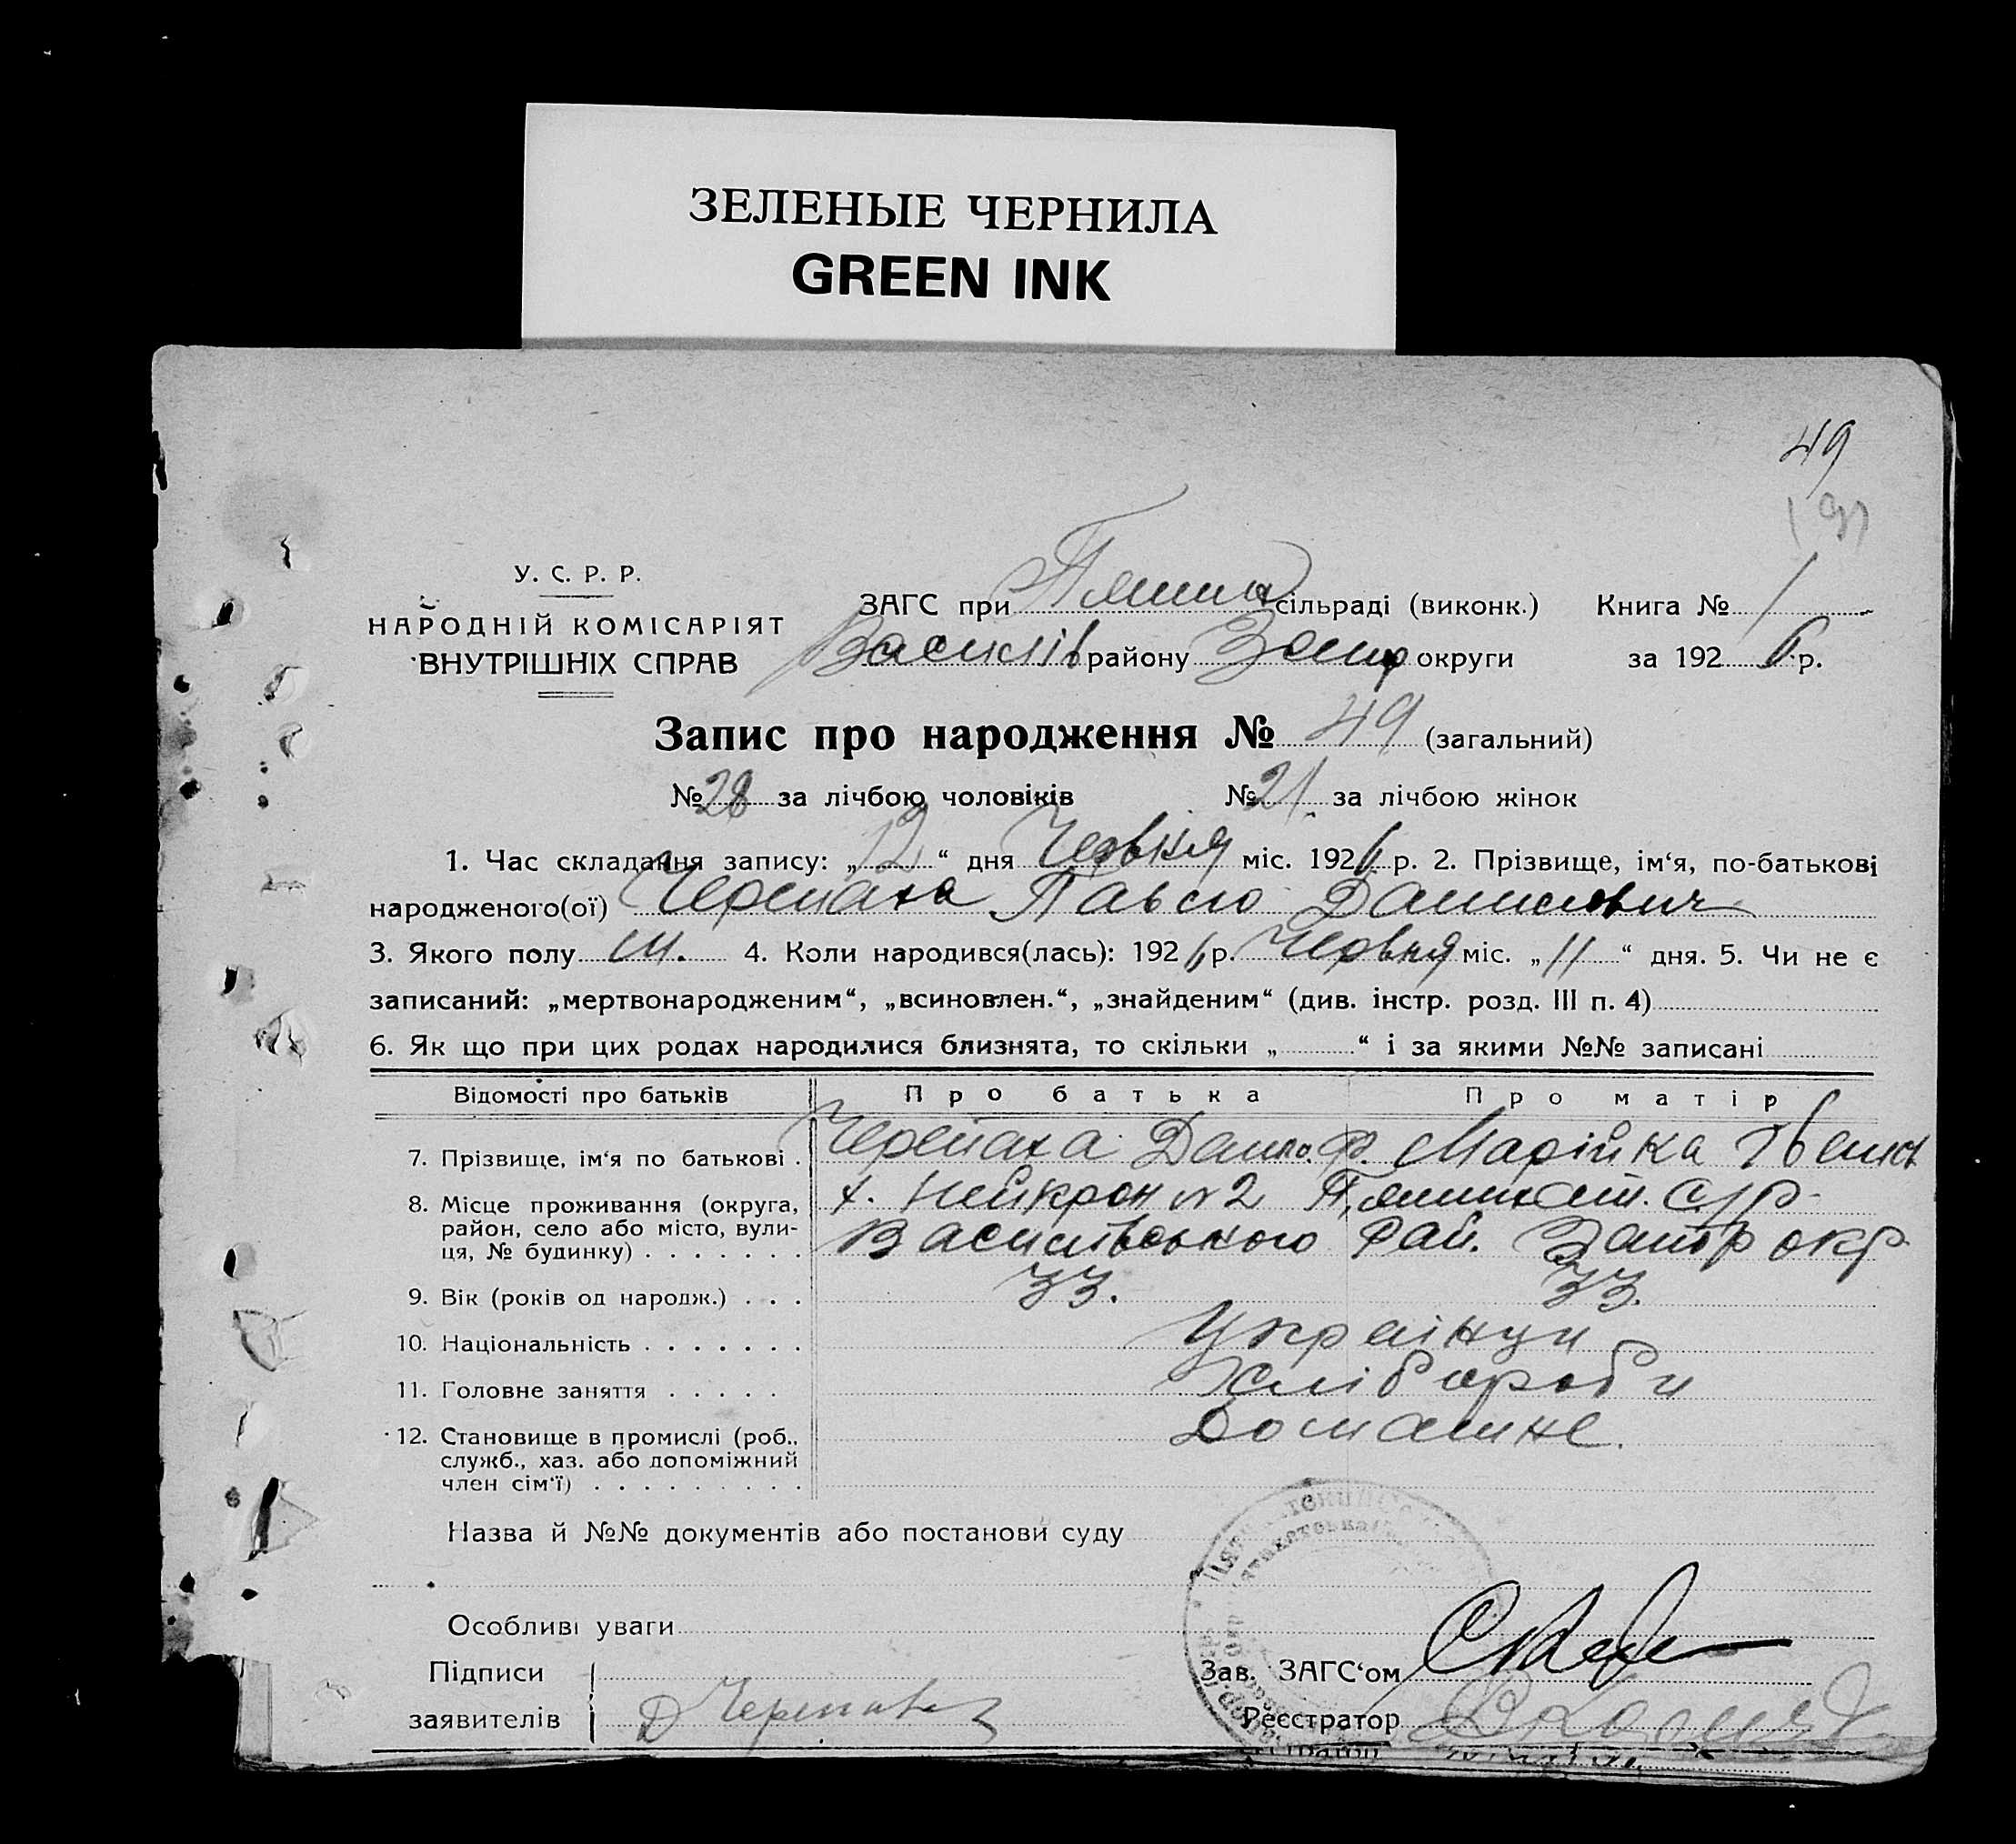 ЗЕЛЕНЫЕ ЧЕРНИЛА
GREEN INK
49
У. С. Р. Р.
НАРОДНІЙ КОМІСАРІЯТ
ВНУТРІШНІХ СПРАВ
ЗАГС при сільраді (виконк.) Книга № 1
Василів району Запор округи за 1926 р.
Запис про народження № 49 (загальний)
№ 28 за лічбою чоловіків № 21 за лічбою жінок
1. Час складання запису: „12“ дня Червня міс. 1926 р. 2. Прізвище, ім‘я, по-батькові
народженого(ої) Черепаха Павло Данилович
3. Якого полу ч. 4. Коли народився(лась): 1926 р. Червня міс. „11“ дня. 5. Чи не є
записаний: „мертвонародженим“, „всиновлен.“, „знайденим“ (див. інстр. розд. III п. 4)
6. Як що при цих родах народилися близнята, то скільки „ “ і за якими №№ записані
Відомості про батьків Про батька Про матір
7. Прізвище, ім‘я по батькові . Черепаха Данило Ф. Марійка
8. Місце проживання (округа, х. Нейкрон №2 с/р
район, село або місто, вули- Василівського Рай. Запор окр
ця, № будинку) . . . . . . .
9. Вік (років од народж.) . . . 33. 33.
10. Національність . . . . . . . Українці
11. Головне заняття . . . . . Хлібороби
12. Становище в промислі (роб., Домашне.
служб., хаз. або допоміжний
член сім‘ї) . . . . . . . . .
Назва й №№ документів або постанови суду
Особливі уваги
Підписи Зав. ЗАГС‘ом
заявителів Д Черепаха Реєстратор